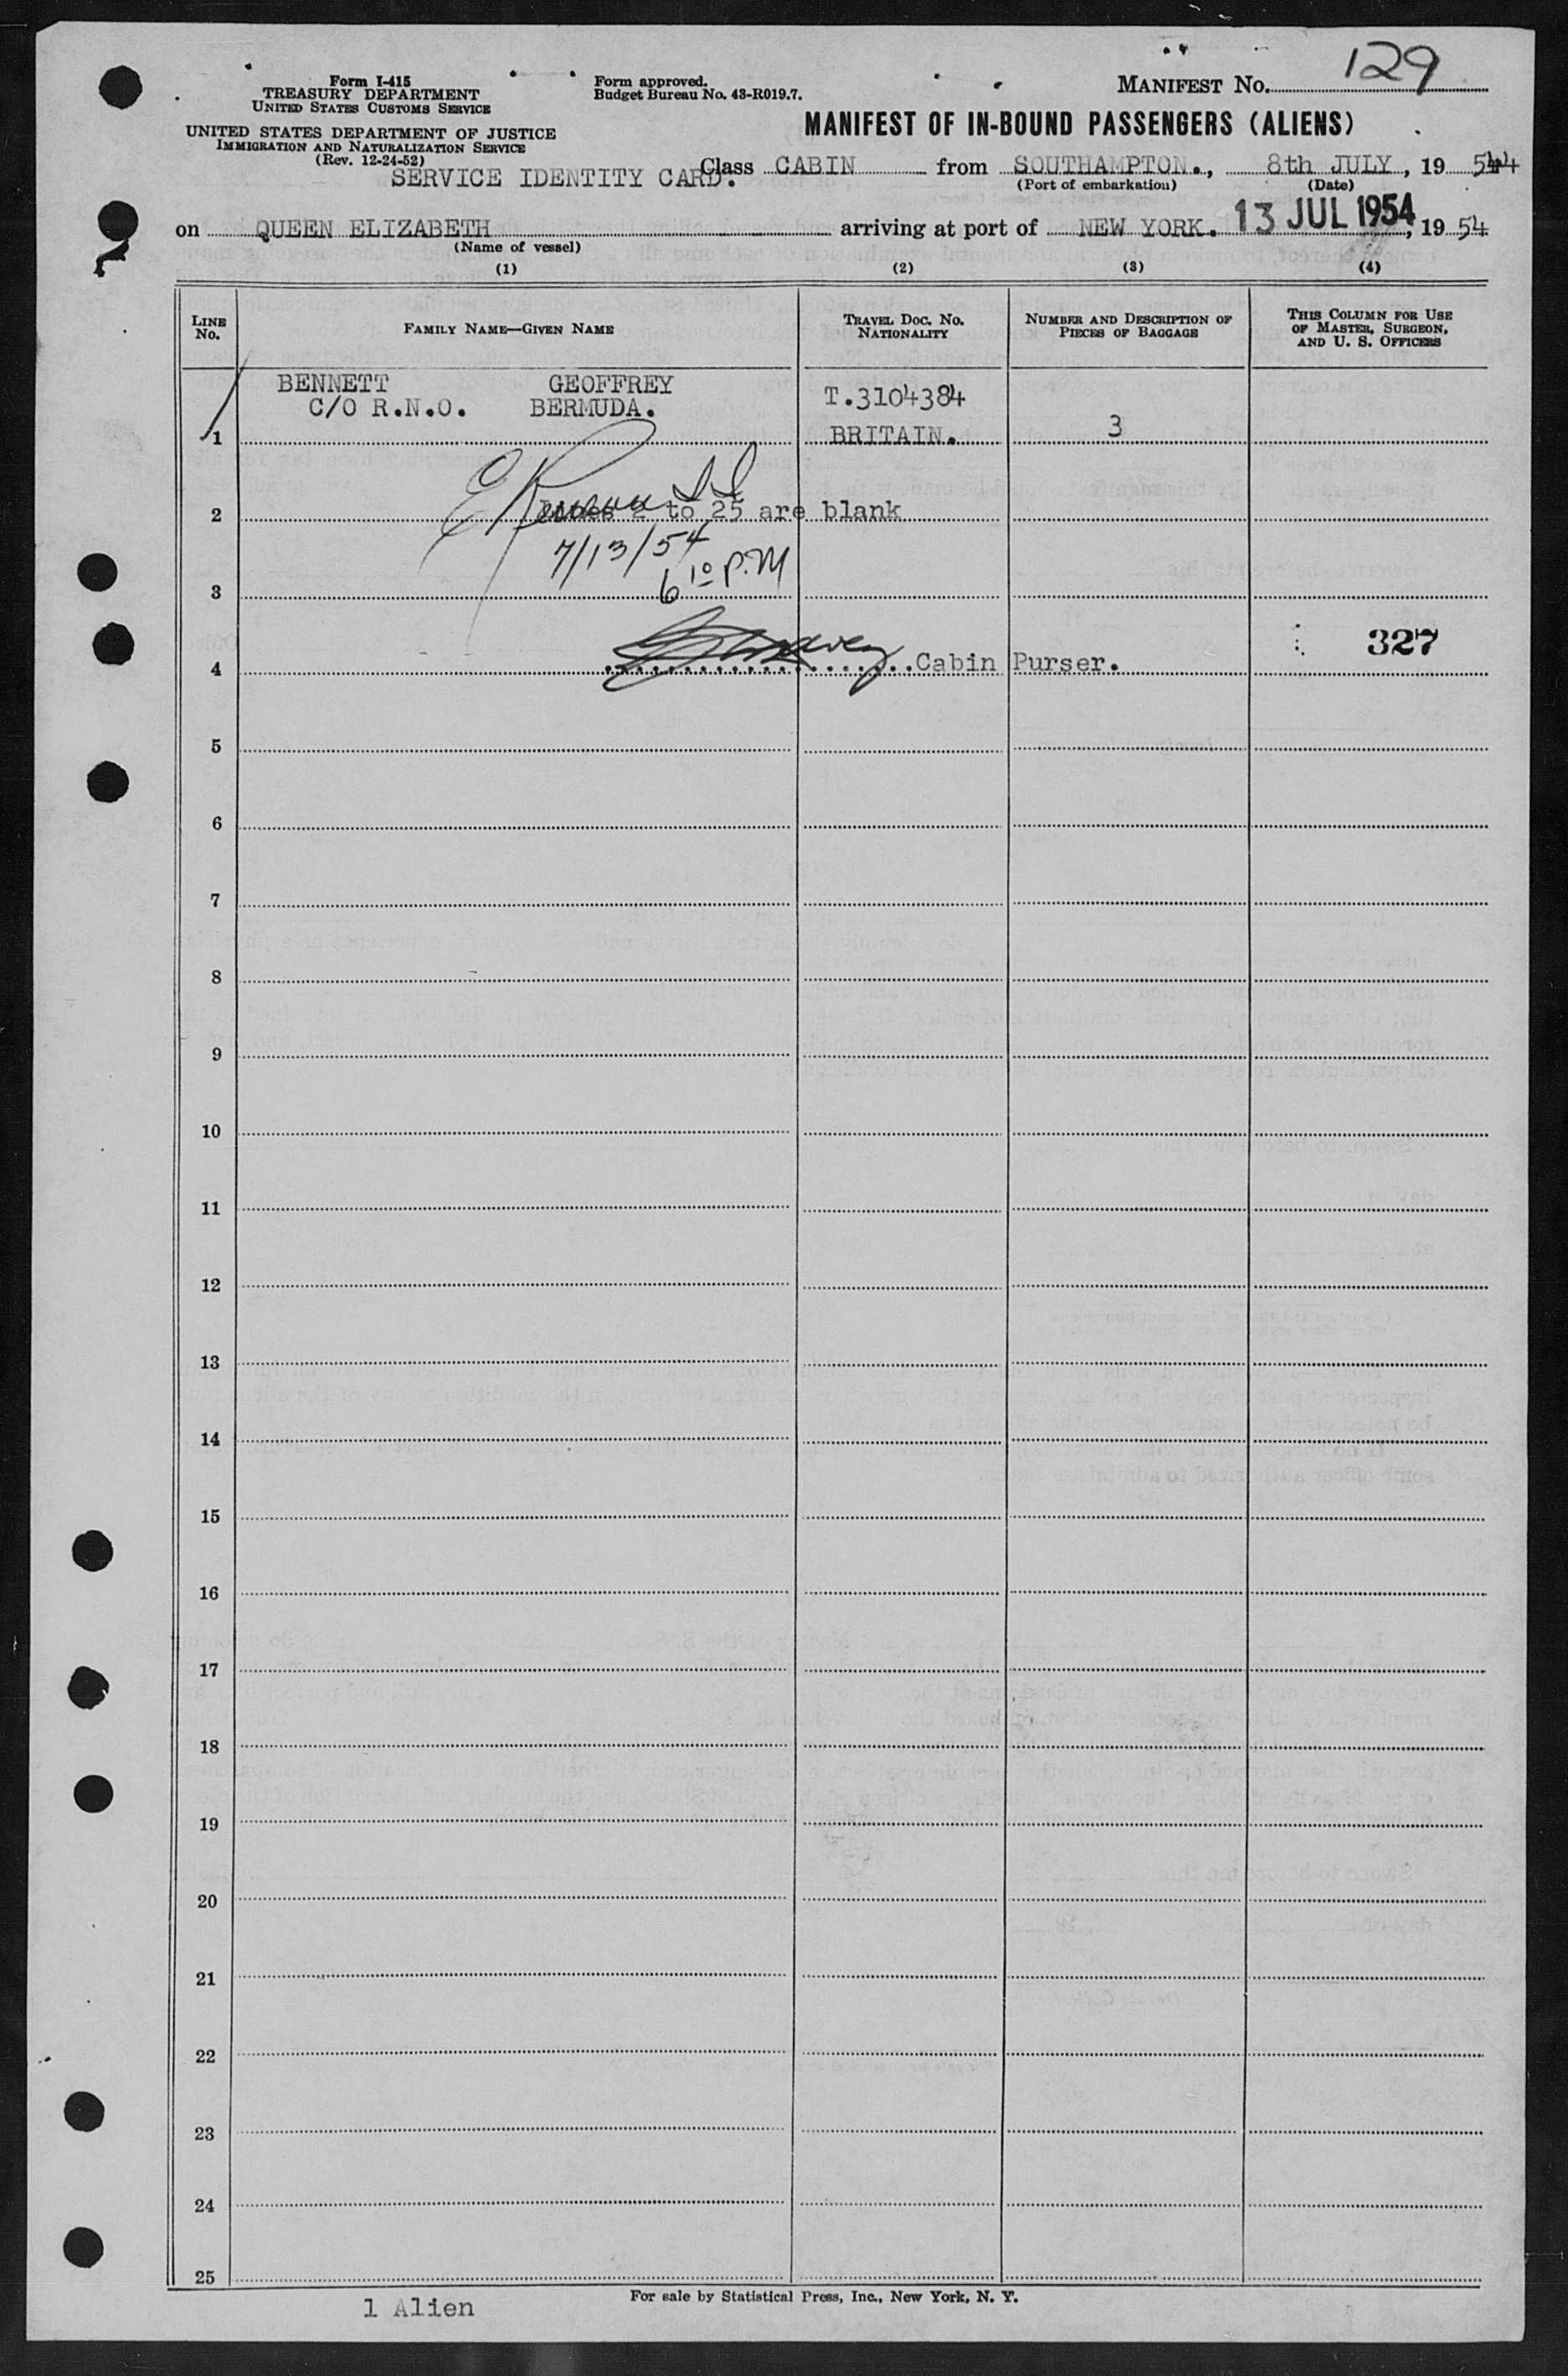 129
Form I-415
TREASURY DEPARTMENT
UNITED STATES CUSTOMS SERVICE
UNITED STATES DEPARTMENT OF JUSTICE
IMMIGRATION AND NATURALIZATION SERVICE
(Rev. 12-24-52)
Form approved.
Budget Bureau No. 43-R019.7.
MANIFEST NO.
MANIFEST OF IN-BOUND PASSENGERS (ALIENS)
SERVICE IDENTITY CARD.
Class CABIN from SOUTHAMPTON., 8th JULY, 19 54
(Port of embarkation) (Date)
on QUEEN ELIZABETH arriving at port of NEW YORK. 13 JUL 1954, 19 54
(Name of vessel)
(1) (2) (3) (4)
LINE NO.
FAMILY NAME—GIVEN NAME
TRAVEL DOC. NO.
NATIONALITY
NUMBER AND DESCRIPTION OF
PIECES OF BAGGAGE
THIS COLUMN FOR USE
OF MASTER, SURGEON,
AND U. S. OFFICERS
BENNETT GEOFFREY T.3104384
C/O R.N.O. BERMUDA.
1 BRITAIN. 3
2 Lines 2 to 25 are blank
7/13/54
3 6 10 P.M
327
4 Cabin Purser.
5
6
7
8
9
10
11
12
13
14
15
16
17
18
19
20
21
22
23
24
25
1 Alien
For sale by Statistical Press, Inc., New York, N. Y.